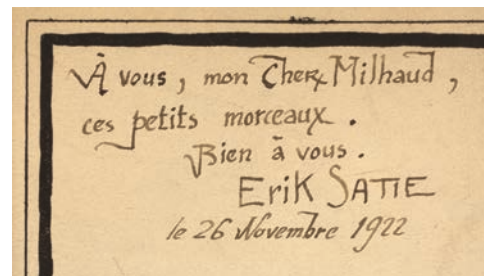 À vous, mon Cher Milhaud,
ces petits morceaux.
Bien à vous.
Erik SATIE
le 26 Novembre 1922